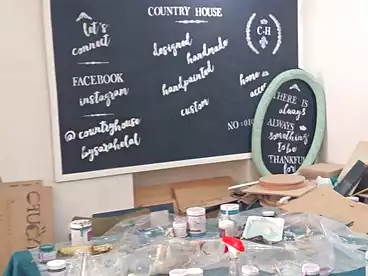 COUNTRY HOUSE
let's
connect
FACEBOOK
instagram
@countryhouse
bysarahelal
designed
handmade
handpainted
custom
home
acce
NO:010
C-H
THERE IS
always
ALWAYS
something
to be
THANKFUL
for